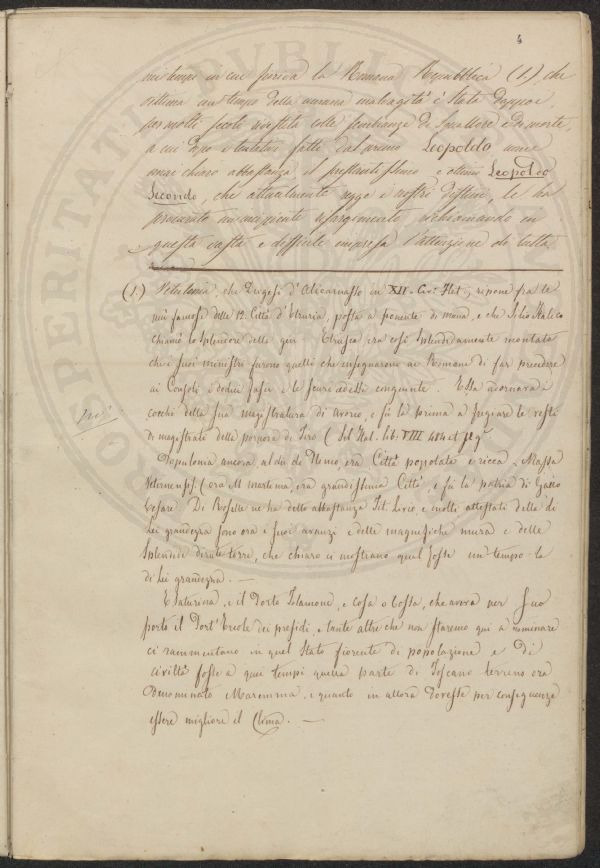 4
nei tempi in cui fioriva la Romana Repubblica (1) che
vittima un tempo della umana malvagità è stata dappoi
per molti secoli rivestita colle sembianze di squallore e di morte,
a cui dopo i tentativi fatti dal primo Leopoldo
mai chiaro abbastanza, il prestantissimo e ottimo Leopoldo
Secondo, che attualmente regge i nostri destini, le ha
procurato un risorgimento richiamando in
questa vasta e difficile impresa l'attenzione di tutta
(1.) Vetulonia, che Dionigi d'Alicarnasso in XII. Civ. Het. ripone fra le
più famose delle 12. Città d'Etruria, posta a ponente di mona, e che Silio Italico
chiamò lo splendore della gen Etrusca era così splendidamente montata
che i suoi ministri furono quelli che insegnarono ai Romani di far precedere
ai Consoli i dodici fasci e le scuri addetti cinquente. Essa adornava i
cocchi della sua magistratura di avorio, e fù la prima a fregiare le vesti
di magistrati della porpora di Tiro (Sil. Ital. lib. VIII 484 et sq.
Populonia ancora al dir de Plinio, era Città popolata e ricca - Massa
Veternensis (ora M. marittima, era grandissima Città e fù la patria di Gallo
Cesare. Di Roselle ne ha detto abbastanza Tit. Livio, e molti attestati della di
Lei grandezza sono ora i suoi avanzi e delle magnifiche mura e delle
splendide dirute terre, che chiaro ci mostrano qual fosse un tempo la
di Lei grandezza. —
E Saturnia, e il Porto Telamone, e Cosa o Cossa, che aveva per suo
porto il Port'Ercole dei presidi, e tante altre che non staremo qui a nominare
ci rammentano in qual stato fiorente di popolazione e di
civiltà fosse a quei tempi quella parte di Toscano terreno ora
Denominato Maremma, e quanto in allora dovesse per conseguenza
essere migliore il Clima. —
PROSPERITATI PVBLICAE